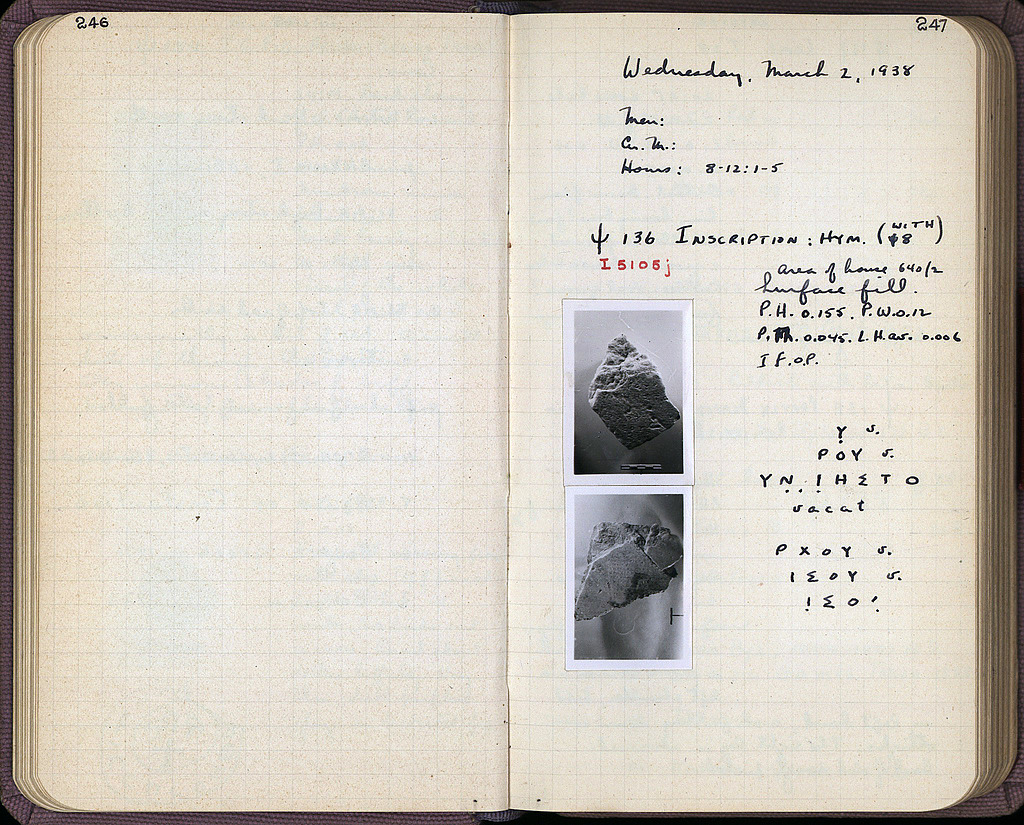 246
247
Wednesday, March 2, 1938
Men:
Cu. M.:
Hours: 8-12:1-5
ψ 136 INSCRIPTION: HYM. (WITH ψ8)
I 5105j
area of house 640/2
Surface fill.
P.H. 0.155. P.W. 0.12
P.Th. 0.045. L.H. av. 0.006
I F.O.P.
Ỵ v.
ΡΟΥ v.
ΥΝ̣.Ι̣ΗΣΤΟ
vacat
ΡΧΟΥ v.
ΙΣΟΥ v.
Ι̣ΣΟ'̣